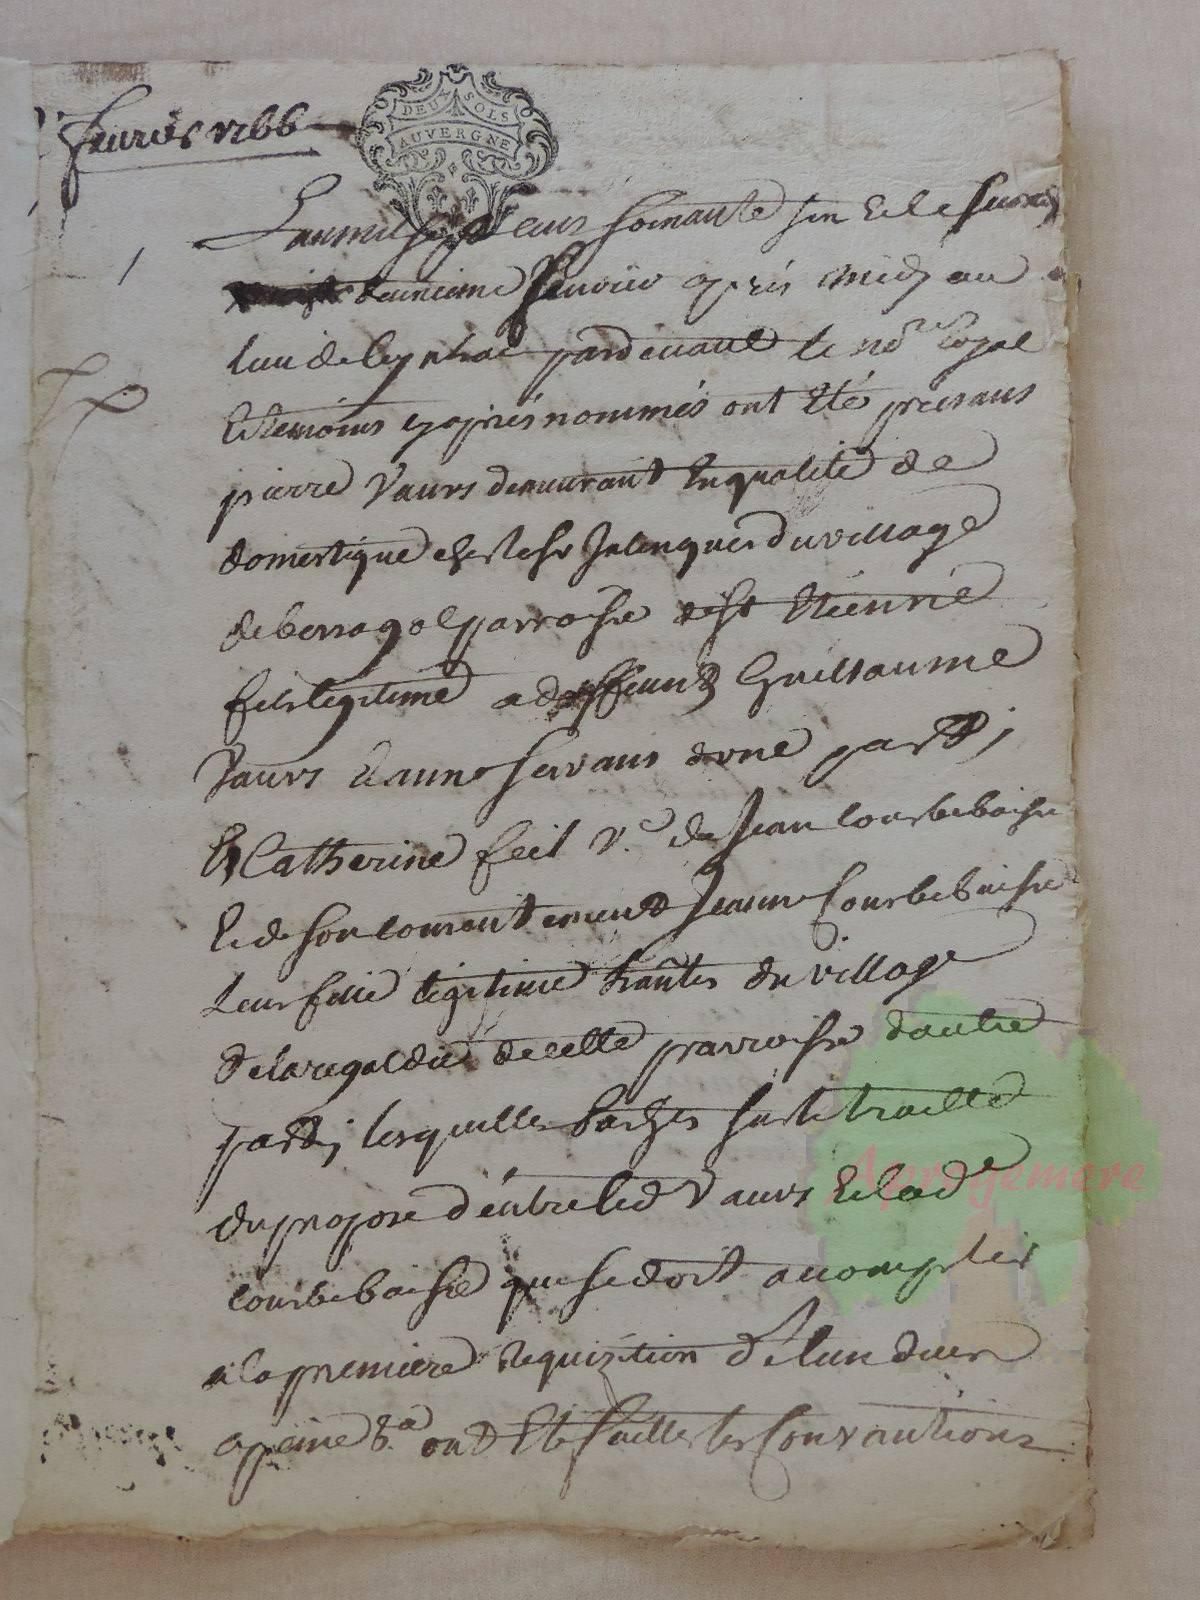 fevrier 1766
DEUX SOLS
AUVERGNE
Lan mil sept cens soixante six et le
deuxieme fevrier apres midy au
lieu de leynhac pardevant le no.re royal
et temoins cy apres nommés ont eté presans
pierre Vaurs demeurant en qualité de
domestique ches le sr Jalenques du village
de berragol parroisse de st etienne
fils legitime a deffunt Guillaume
Vaurs et anne servans d'une part,
Et Catherine feil v.e de Jean Courbebaisse
et de son consentement Jeanne Courbebaisse
leur fille legitime h'antes du village
de la regaldie de cette parroisse d'autre
part, lesquelles parties sur le traitte
du propose d'entre led Vaurs et lad.e
courbebaisse que se doit accomplir
a la premiere requizition de l'un deux
a peine &.a ont eté faittes les Convantions
Aprogemere